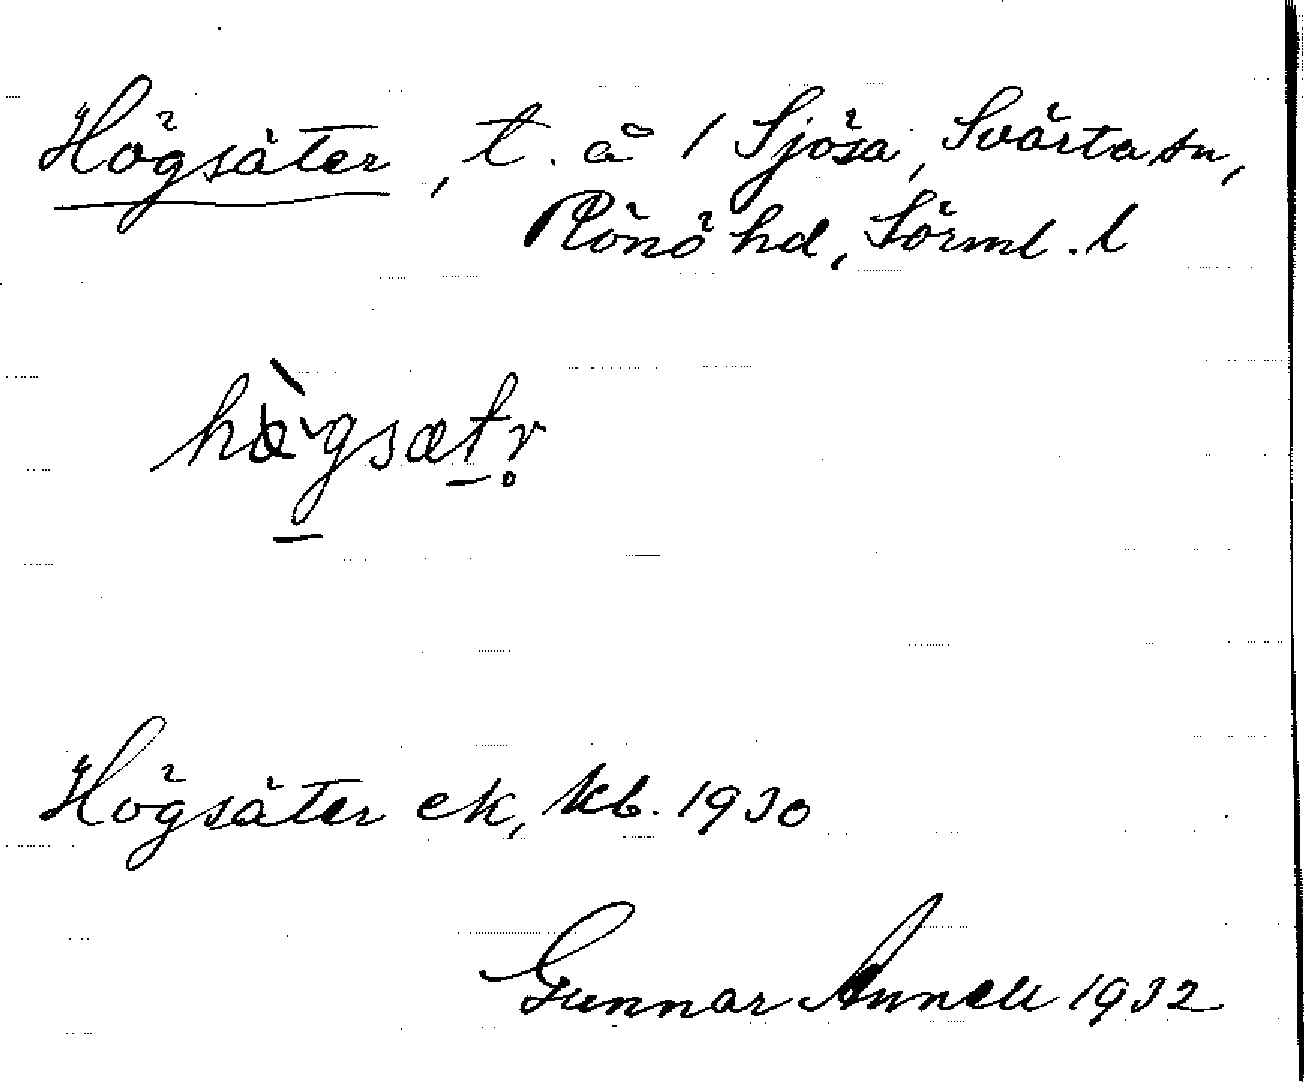 Högsäter, t. å / Sjösa, Svärta sn,
Rönö hd, Sörml. l
Högsäter ek, kb. 1930
Gunnar Annell 1932